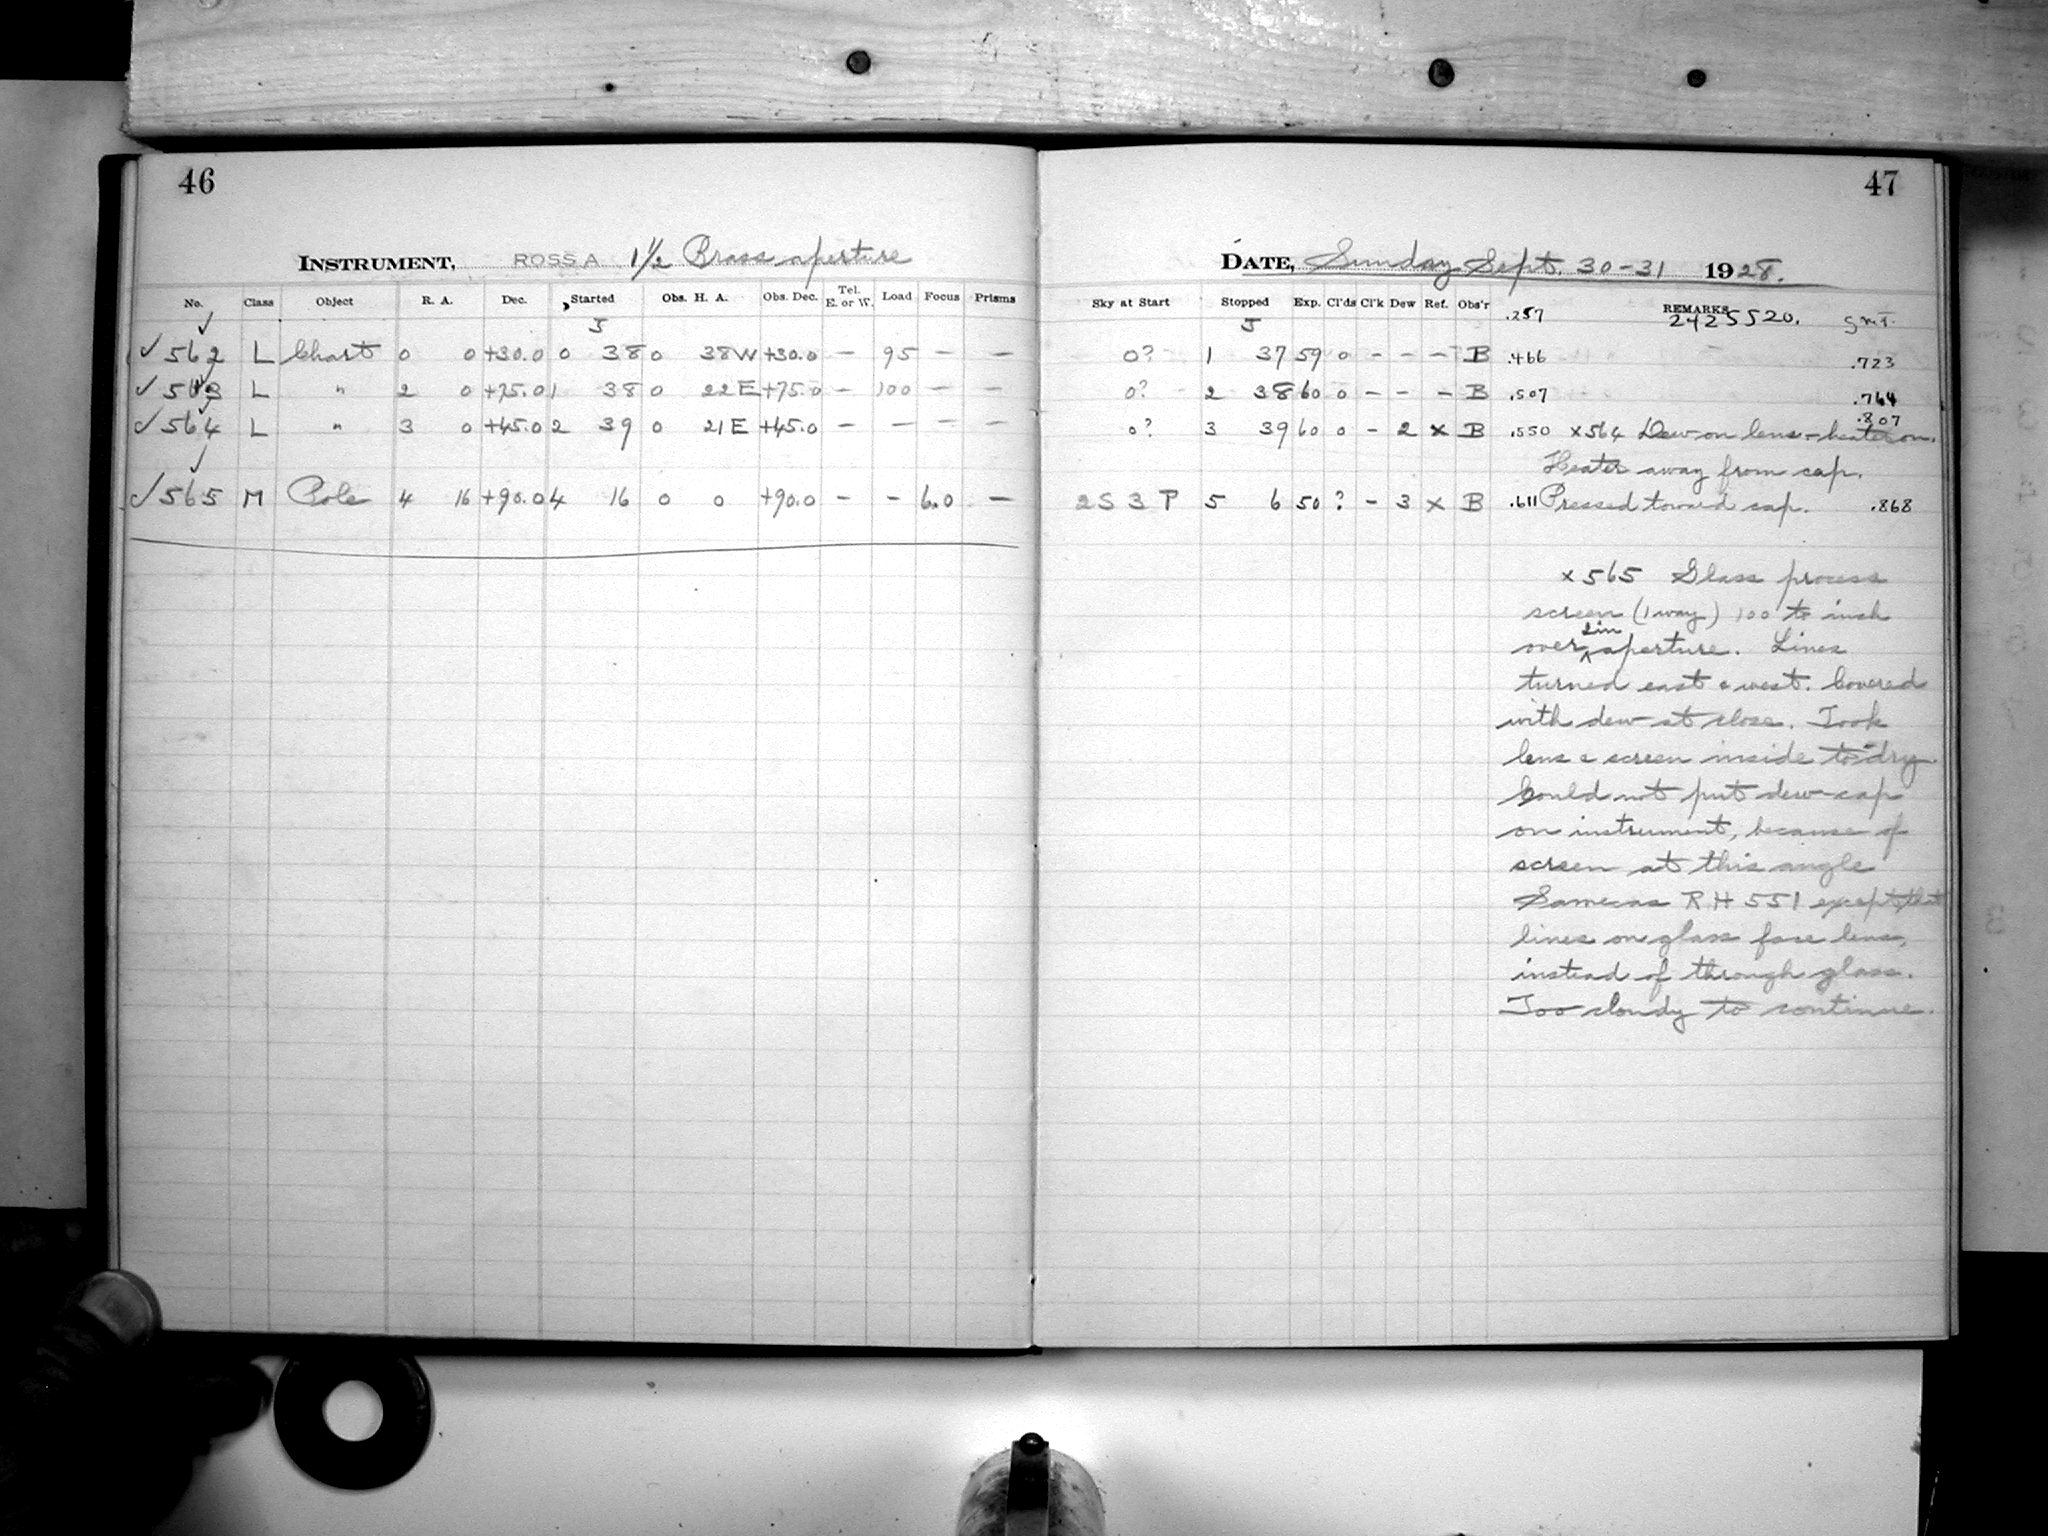 46
INSTRUMENT, ROSS A 1½ Brass aperture
No. Class Object R. A. Dec. Started Obs. H. A. Obs. Dec. Tel. E. or W. Load Focus Prisms
J
✓ 562 L Chart 0 0 +30.0 0 38 0 38W +30.0 – 95 – –
✓ 563 L " 2 0 +75.0 1 38 0 22E +75.0 – 100 – –
✓ 564 L " 3 0 +45.0 2 39 0 21E +45.0 – – – –
✓ 565 M Pole 4 16 +90.0 4 16 0 0 +90.0 – – 6.0 –
47
DATE, Sunday Sept. 30-31 1928.
Sky at Start Stopped Exp. Cl'ds Cl'k Dew Ref. Obs'r REMARKS
J .257 2425520. GMT.
0? 1 37 59 0 – – – B .466 .723
0? 2 38 60 0 – – – B .507 .764
.807
0? 3 39 60 0 – 2 x B .550 x564 Dew on lens – heater on.
Heater away from cap.
2S 3 P 5 6 50 ? – 3 x B .611 Pressed toward cap. .868
x565 Glass process
screen (1 way) 100 to inch
over 2in aperture. Lines
turned east & west. Covered
with dew at close. Took
lens & screen inside to dry
Could not put dew-cap
on instrument, because of
screen at this angle
Same as RH 551 except that
lines on glass face lens,
instead of through glass.
Too cloudy to continue.